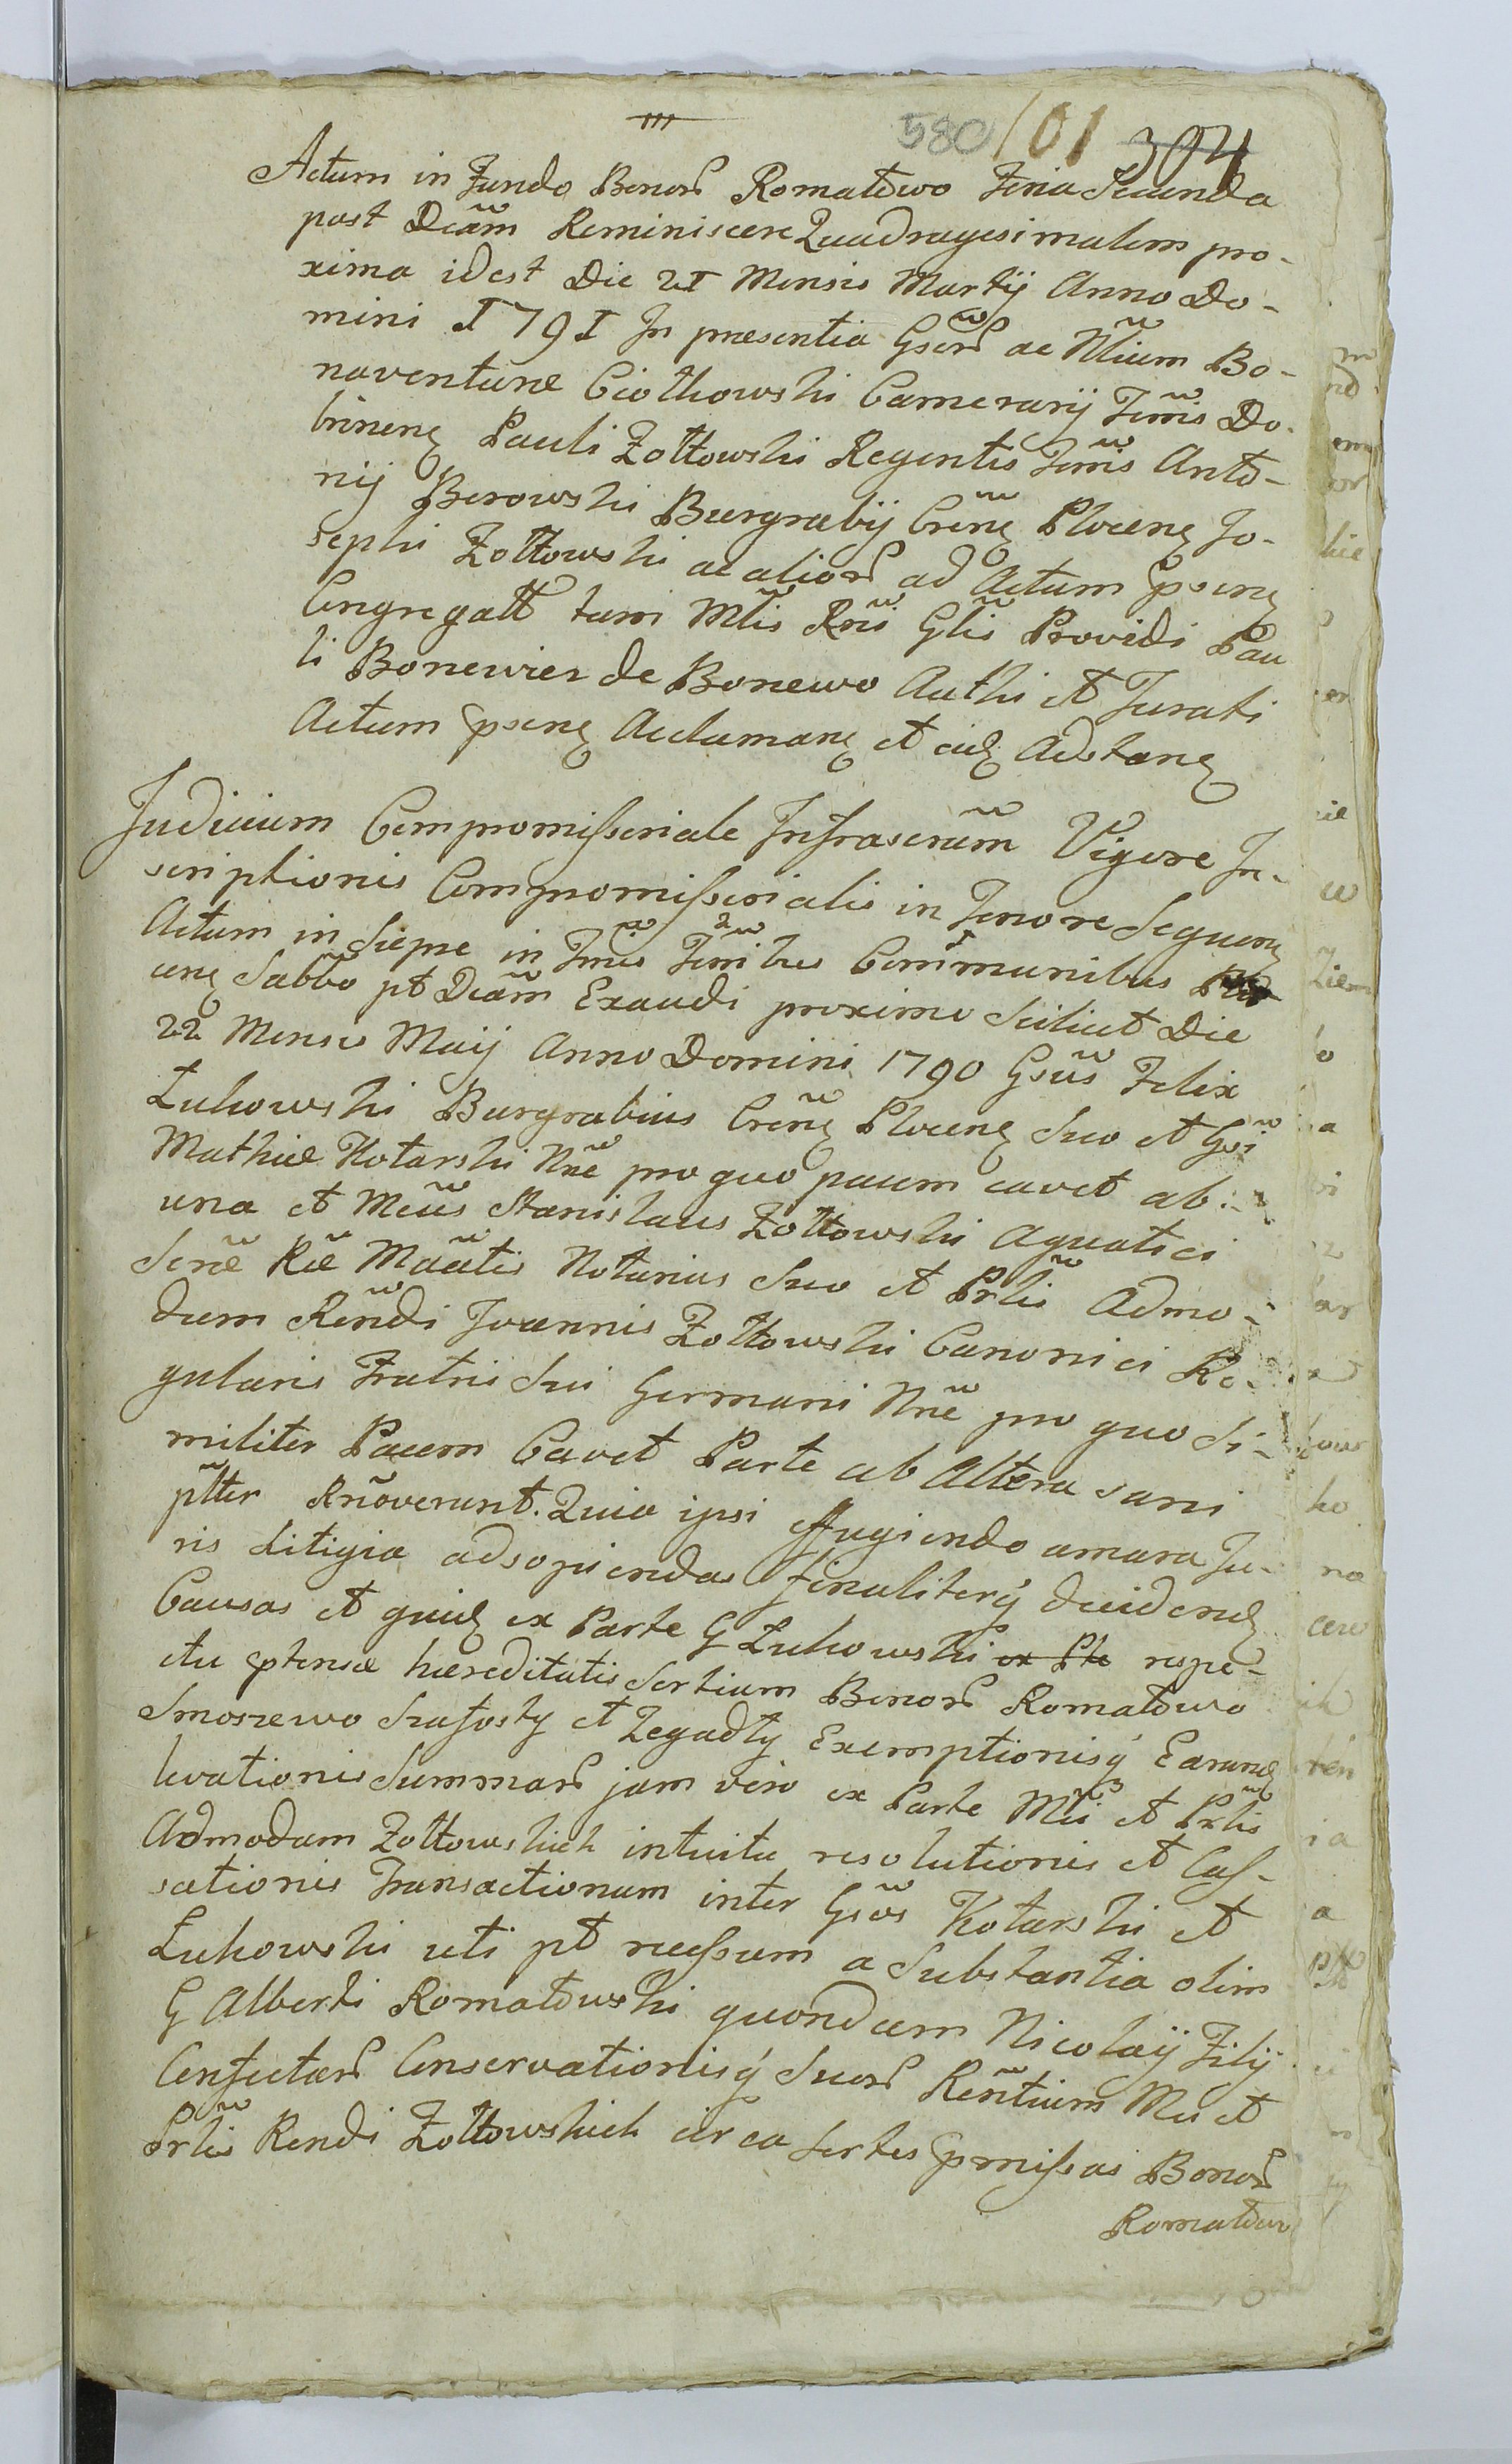 580/01 394
Actum in Fundo Bonoru Romatowo Feria Secunda
post Dcam Reminiscere Quadragesimalem pro-
xima idest Die 21 Mensis Martij Anno Do-
mini 1791 In praesentia Gsoru ac Mcium Bo-
naventurae Ciołkowski Camerarij Trris Do-
brinen Pauli Zołtowski Regentis Trris Anto-
nij Borowski Burgrabij Cren Plocen Jo-
sephi Zołtowski ac aliorum ad Actum psen
Congregatt tum Mtis Rnis Glis Providi Pau
li Bonewicz de Bonewo Authi et Jurati
Actum psen Acclaman et eid Adstan
Judicium Compromissoriale Infrascrum Vigore In-
scriptionis Compromissorialis in Tenore Sequen
Actum in Sierpc in Tmis Trribus Communibus Plo
cen Sabbo pt Dcam Exaudi proximo Scilicet Die
22 Mensis Maij Anno Domini 1790 Gsus Felix
Łukowski Burgrabius Cren Plocen Suo et Gsi
Mathiae Kotarski Nne pro quo pacem cavet ab
una et Mcus Stanislaus Zołtowski Aquatici
Scrae Rae Maatis Notarius Suo et Prlis Admo-
dum Rendi Joannis Zołtowski Canonici Re-
gularis Fratris Sui Germani Nne pro quo Si-
militer Pacem Cavet Parte ab Altera sani
pltter Rnoverunt. Quia ipsi effugiendo amara Ju-
ris Litigia adsopiendas finaliterq decidend
Causas et quid ex Parte G Łukowski ex Pte respe-
ctu ptensae haereditatis Sortium Bonoru Romatowo
Smoszewo Szafosty et Zegadty Exemptionisq Earund
levationis Summaru jam vero ex Parte Mci et Prlis
Admodum Zołtowskich intuitu resolutionis et Cas-
sationis Transactionum inter Gsos Kotarski et
Łukowski uti pt recessum a Substantia olim
G Alberti Romatowski quondam Nicolaij Filij
Confectaru Conservationisq Suoru Rentium Mci et
Prlis Rendi Zołtowskich circa Sortes pmissas Bonoru
Romatowo